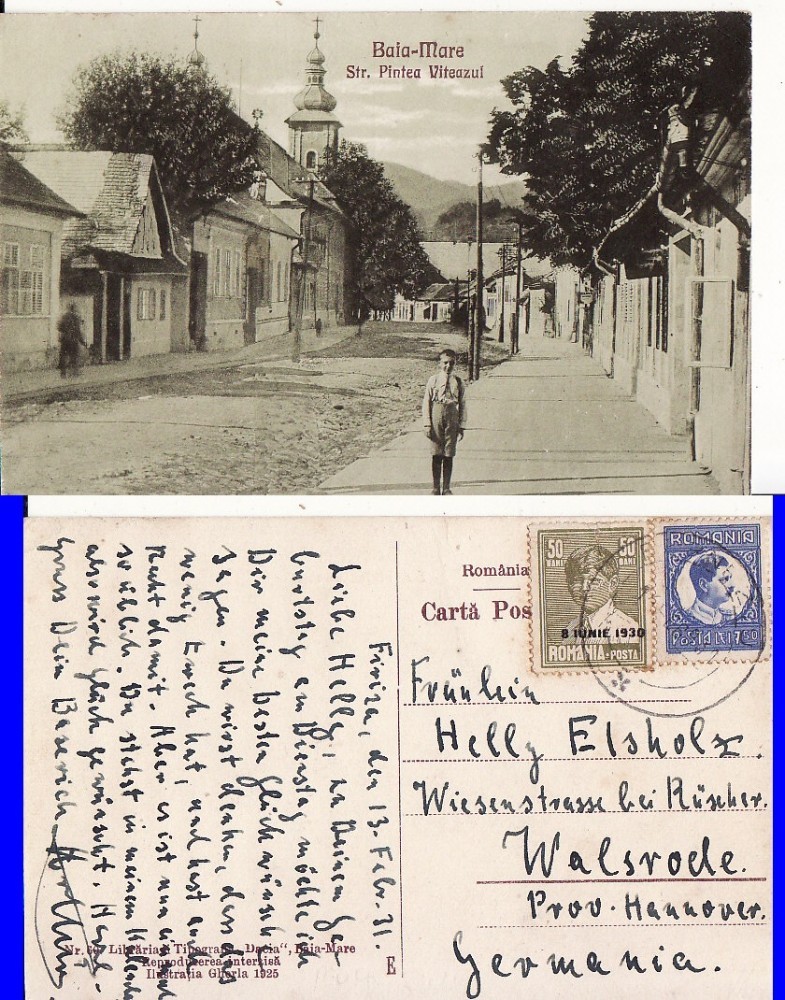 Baia-Mare
Str. Pintea Viteazul
România
Cartă Pos
50 50
BANI BANI
8 IUNIE 1930
ROMÂNIA-POSTA
ROMANIA
POSTA LEI 7.50
Fräulein
Helly Elsholz.
Wiesenstrasse bei Rüscher.
Walsrode.
Prov. Hannover.
Germania.
Firiza, den 13. Febr. 31.
Liebe Helly, zu Deinem Ge-
burtstag am Dienstag möchte ich
Dir meine besten Glückwünsche
sagen. Du wirst denken, dass das
wenig Zweck hat, und hast auch
Recht damit. Aber es ist nun einmal
so üblich. Du stehst in meinem
also wird Glück gewünscht.
Gruss Dein
Nr. Librăria și Tipografia „Dacia“, Baia-Mare
Reproducerea interzisă
Ilustrația Gherla 1925
E